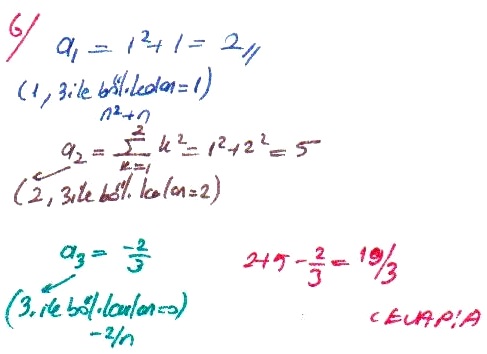 6/
a₁ = 1² + 1 = 2//
(1, 3 ile böl. kalan = 1)
n² + n
a₂ = ∑ₖ₌₁² k² = 1² + 2² = 5
(2, 3 ile böl. kalan = 2)
a₃ = -2/3
(3. ile böl. kalan = 0)
-2/n
2 + 5 - 2/3 = 19/3
CEVAP: A